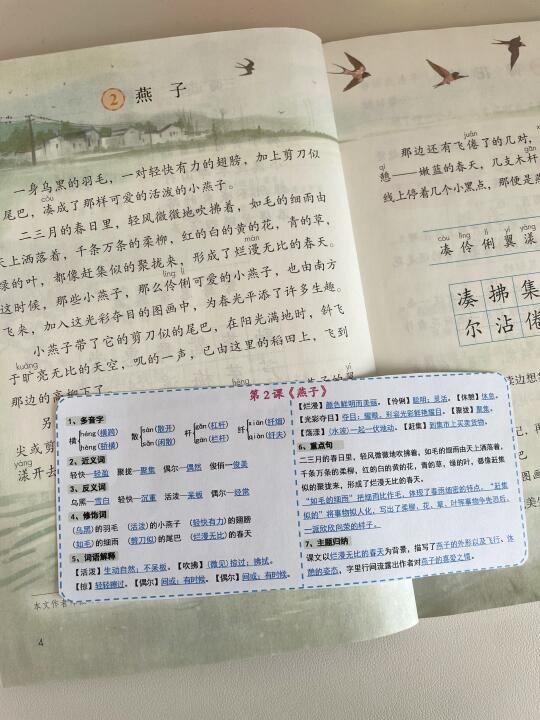 2 燕子
一身乌黑的羽毛，一对轻快有力的翅膀，加上剪刀似
còu
尾巴，凑成了那样可爱的活泼的小燕子。
二三月的春日里，轻风微微地吹拂着，如毛的细雨由
天上洒落着，千条万条的柔柳，红的白的黄的花，青的草，
màn
绿的叶，都像赶集似的聚拢来，形成了烂漫无比的春天。
líng lì
这时候，那些小燕子，那么伶俐可爱的小燕子，也由南方
飞来，加入这光彩夺目的图画中，为春光平添了许多生趣。
小燕子带了它的剪刀似的尾巴，在阳光满地时，斜飞
kuàng
于旷亮无比的天空，叽的一声，已由这里的稻田上，飞到
那边的高柳下了
尖或剪
yàng
漾开去
本文作者
4
juàn
那边还有飞倦了的几对，
qì gān
憩——嫩蓝的春天，几支木杆
线上停着几个小黑点，那便是燕
còu líng lì yì yàng
凑 伶 俐 翼 漾
凑 拂 集
尔 沾 倦
第2课《燕子》
1、多音字
横 héng(横跨) hèng(骄横) 散 sàn(散开) sǎn(闲散) 杆 gǎn(杠杆) gān(栏杆) 纤 xiān(纤细) qiàn(纤夫)
2、近义词
轻快—轻盈 聚拢—聚集 偶尔—偶然 俊俏—俊美
3、反义词
乌黑—雪白 轻快—沉重 活泼—呆板 偶尔—经常
4、修饰词
（乌黑）的羽毛 （活泼）的小燕子 （轻快有力）的翅膀
（如毛）的细雨 （剪刀似）的尾巴 （烂漫无比）的春天
5、词语解释
【活泼】生动自然；不呆板。【吹拂】(微风)掠过；拂拭。
【掠】轻轻擦过。【偶尔】间或；有时候。【偶尔】间或；有时候。
【烂漫】颜色鲜明而美丽。【伶俐】聪明；灵活。【休憩】休息。
【光彩夺目】夺目：耀眼。形容光彩鲜艳耀目。【聚拢】聚集。
【荡漾】（水波）一起一伏地动。【赶集】到集市上买卖货物。
6、重点句
二三月的春日里，轻风微微地吹拂着，如毛的细雨由天上洒落着，
千条万条的柔柳，红的白的黄的花，青的草，绿的叶，都像赶集
似的聚拢来，形成了烂漫无比的春天。
“如毛的细雨”把细雨比作毛，体现了春雨细密的特点。“赶集
似的”将事物拟人化，写出了柔柳、花、草、叶等事物争先恐后、
一派欣欣向荣的样子。
7、主题归纳
课文以烂漫无比的春天为背景，描写了燕子的外形以及飞行、休
憩的姿态，字里行间流露出作者对燕子的喜爱之情。